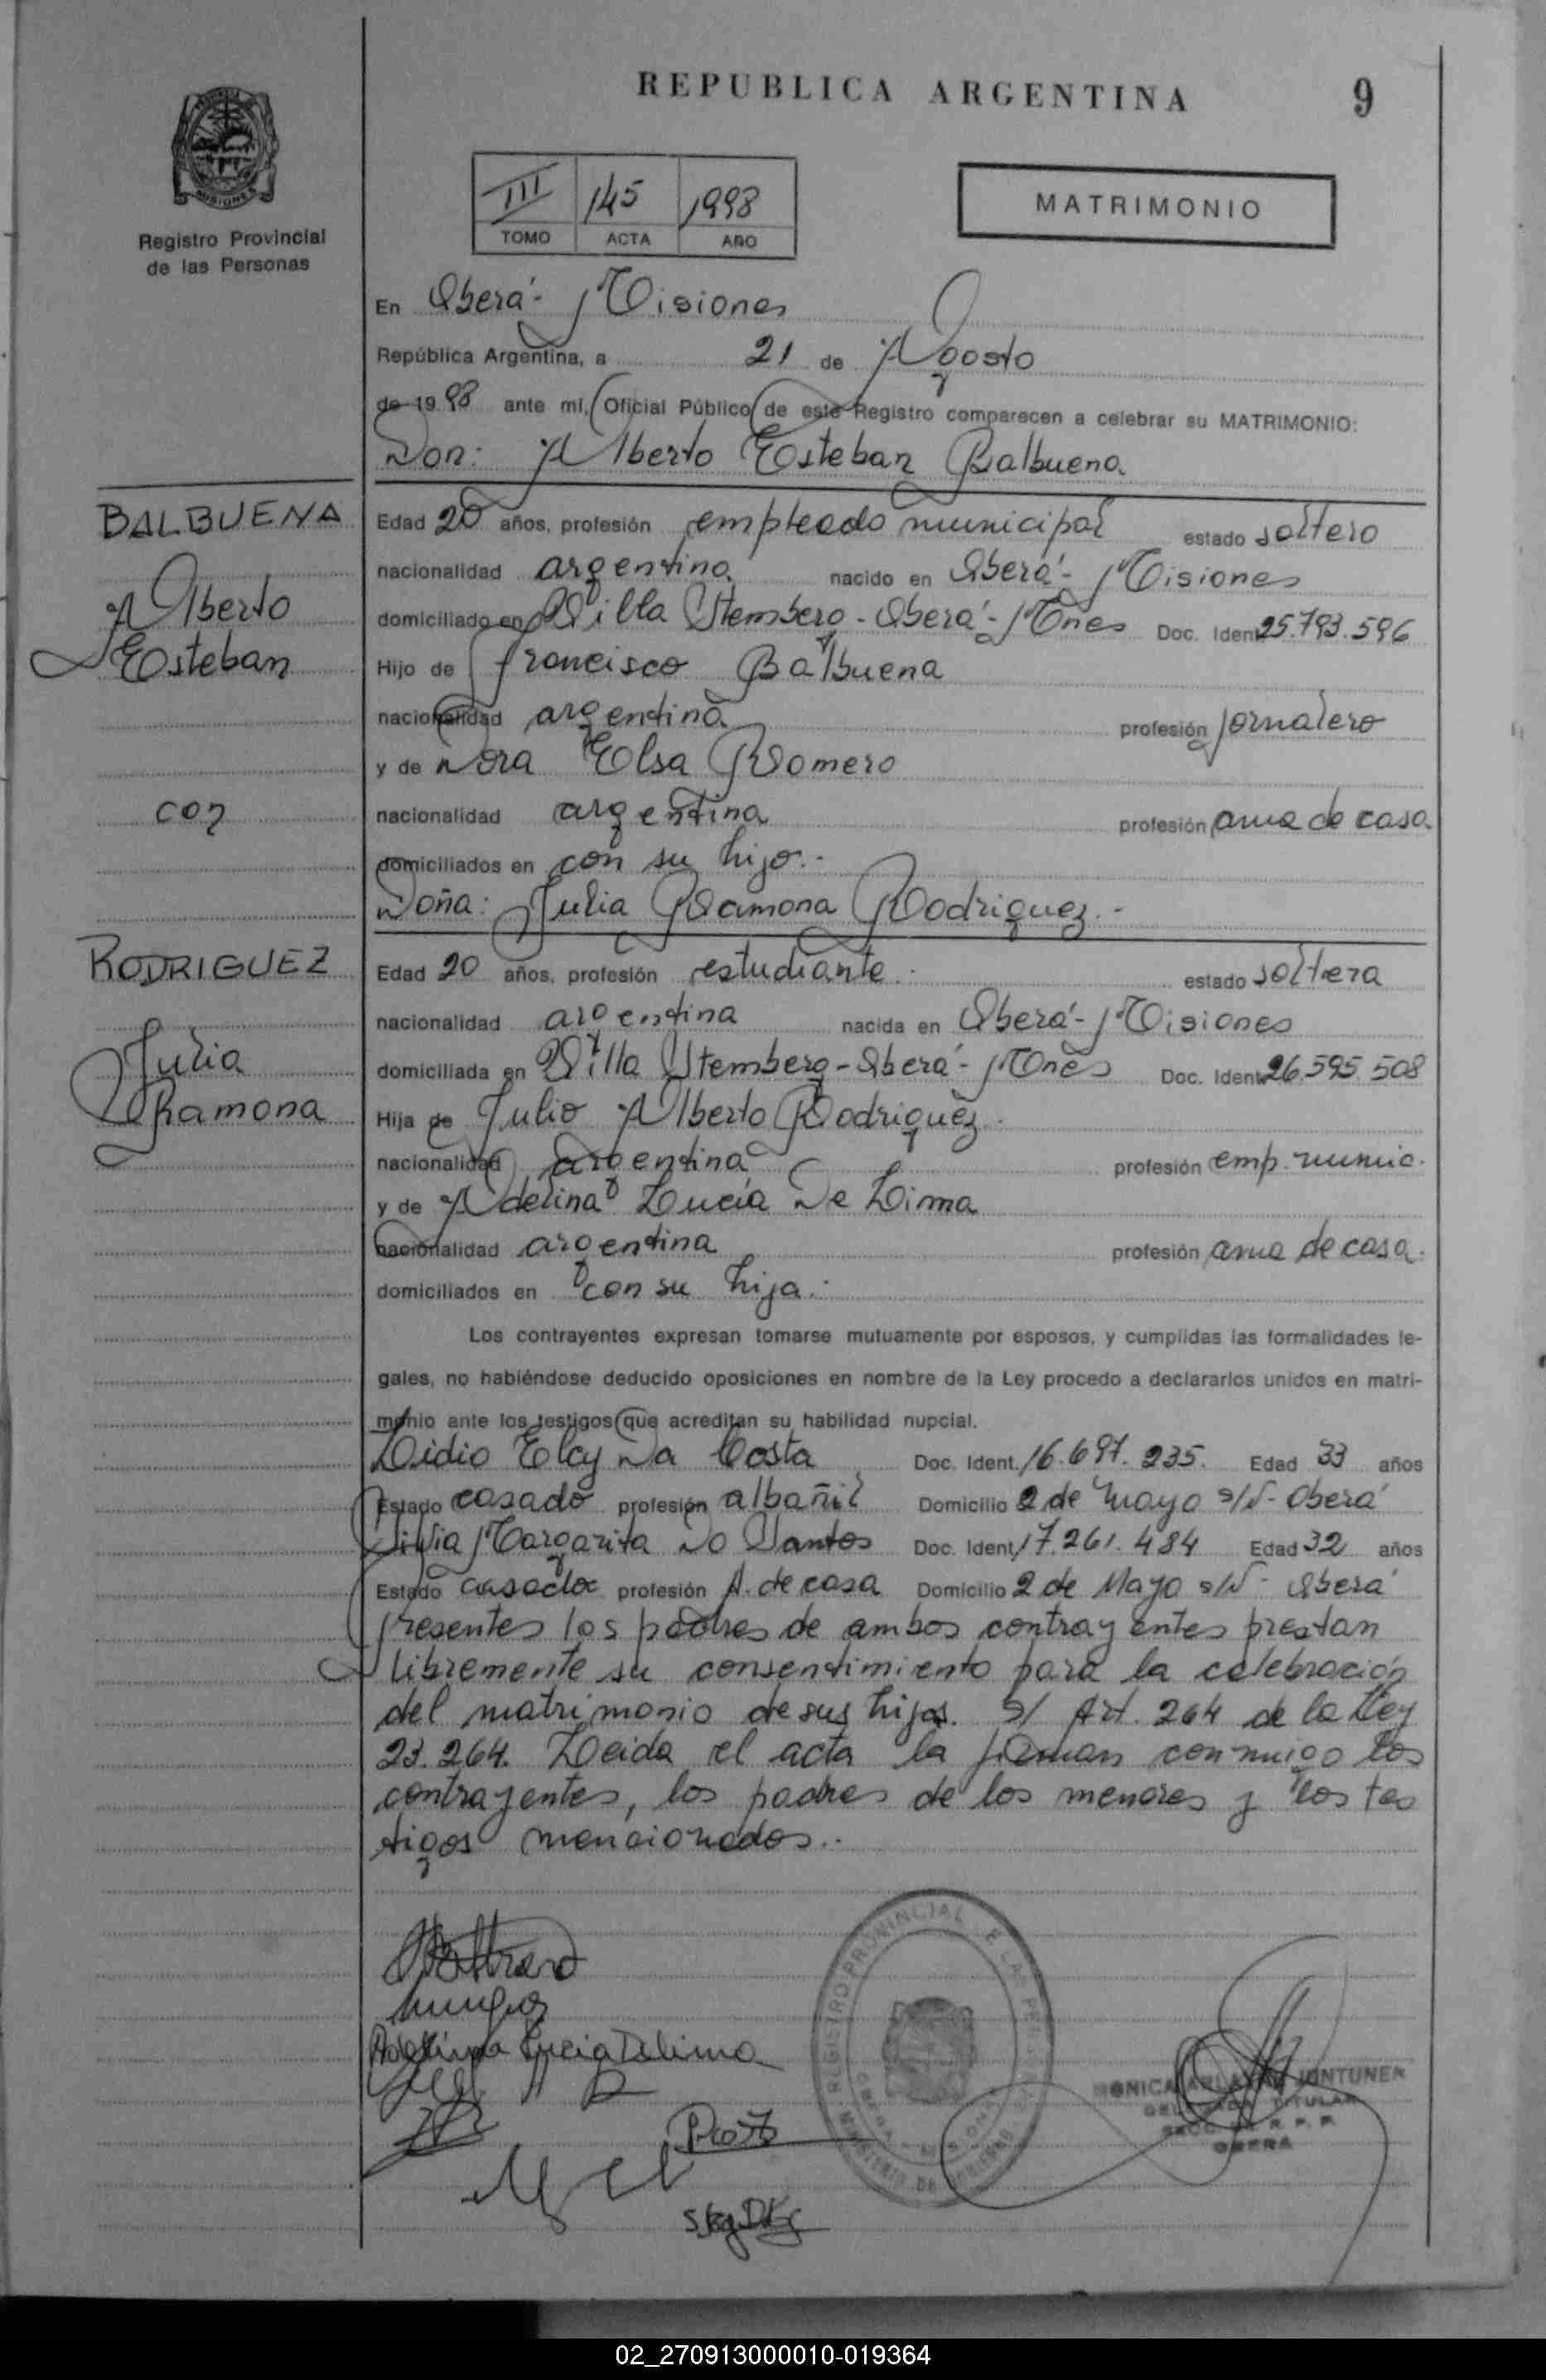 REPUBLICA ARGENTINA
9
MISIONES
Registro Provincial
de las Personas
III 145 1998
TOMO ACTA AÑO
MATRIMONIO
En Oberá - Misiones
República Argentina, a 21 de Agosto
de 1998 ante mí, Oficial Público de este Registro comparecen a celebrar su MATRIMONIO:
Don: Alberto Esteban Balbuena
BALBUENA
Alberto
Esteban
con
RODRIGUEZ
Julia
Ramona
Edad 20 años, profesión empleado municipal estado soltero
nacionalidad argentina nacido en Oberá - Misiones
domiciliado en Villa Stemberg - Oberá - Mnes Doc. Ident. 25.793.596
Hijo de Francisco Balbuena
nacionalidad argentina profesión jornalero
y de Dora Elsa Romero
nacionalidad argentina profesión ama de casa
domiciliados en con su hijo.-
Doña: Julia Ramona Rodriguez.-
Edad 20 años, profesión estudiante. estado soltera
nacionalidad argentina nacida en Oberá - Misiones
domiciliada en Villa Stemberg - Oberá - Mnes Doc. Ident. 26.595.508
Hija de Julio Alberto Rodriguez.
nacionalidad argentina profesión emp. munic.
y de Adelina Lucía De Lima
nacionalidad argentina profesión ama de casa.
domiciliados en con su hija.
Los contrayentes expresan tomarse mutuamente por esposos, y cumplidas las formalidades le-
gales, no habiéndose deducido oposiciones en nombre de la Ley procedo a declararlos unidos en matri-
monio ante los testigos que acreditan su habilidad nupcial.
Lidio Elcy Da Costa Doc. Ident. 16.697.235. Edad 33 años
Estado casado profesión albañil Domicilio 2 de Mayo s/N - Oberá
Silvia Margarita Do Santos Doc. Ident. 17.261.484 Edad 32 años
Estado casada profesión A. de casa Domicilio 2 de Mayo s/N - Oberá
Presentes los padres de ambos contrayentes prestan
libremente su consentimiento para la celebración
del matrimonio de sus hijos. s/ Art. 264 de la Ley
23.264. Leida el acta la firman conmigo los
contrayentes, los padres de los menores y los tes
tigos mencionados..
Adelina Lucia Delima
REGISTRO PROVINCIAL DE LAS PERSONAS
MINISTERIO DE GOBIERNO
OBERA - MISIONES
MONICA
DELEGADA TITULAR
SECC. R. P. P.
OBERA
02_270913000010-019364